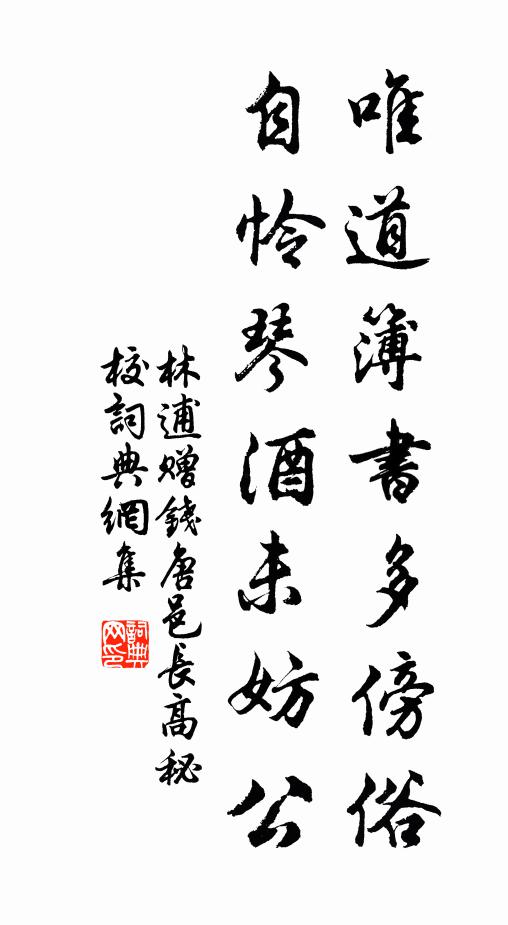 唯道簿書多傍俗
自怜琴酒未妨公
林逋赠錢唐邑長高秘
校詞典網集
詞典网印